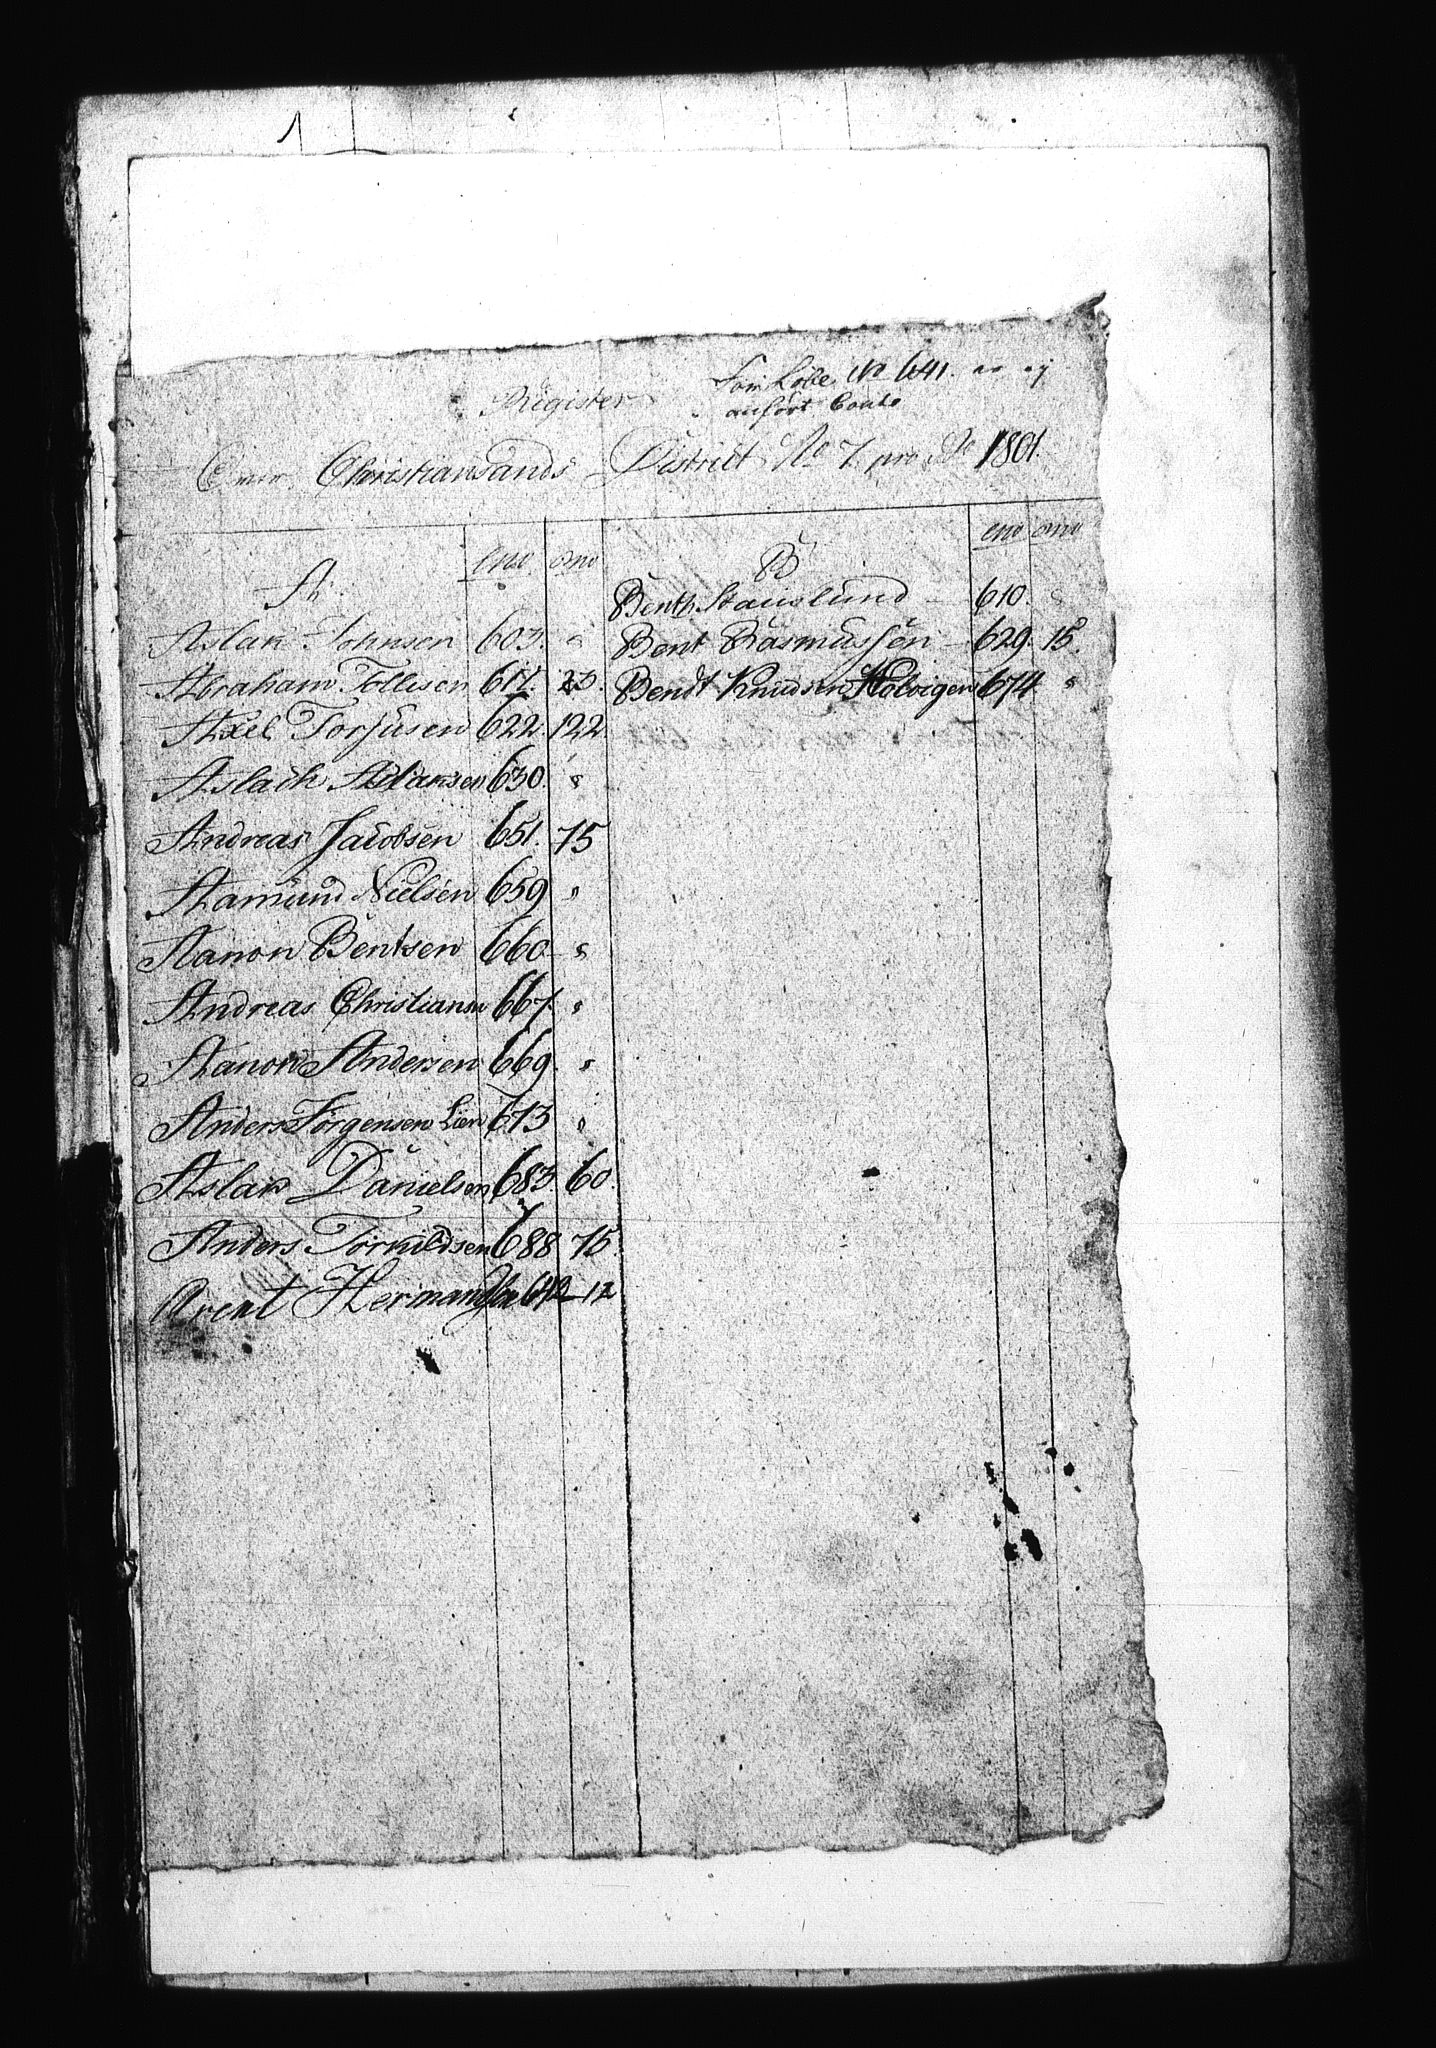 1
Register
No 641. er ej
anfört
Over Christiansands District No 7. pro Ao 1801.
A. eno omo
Aslak Johnsen 603. "
Abraham Tollisen 617. 20.
Axel Torjusen 622. 122.
Aslach Aslaksen 630. "
Andreas Jacobsen 651. 75
Aamund Nielsen 659 "
Aanon Bentsen 660 "
Andreas Christiansn 667. "
Aanon Andersen 669. "
Anders Jörgensen Lien 673 "
Aslak Danielsen 683 60.
Anders Torkildsen 688 75
Arent Hermansen 642 12
B eno omo
Benth Stauslund 610. "
Bent Rasmussen 629. 15.
Bendt Knudsen Holvigen 674 "